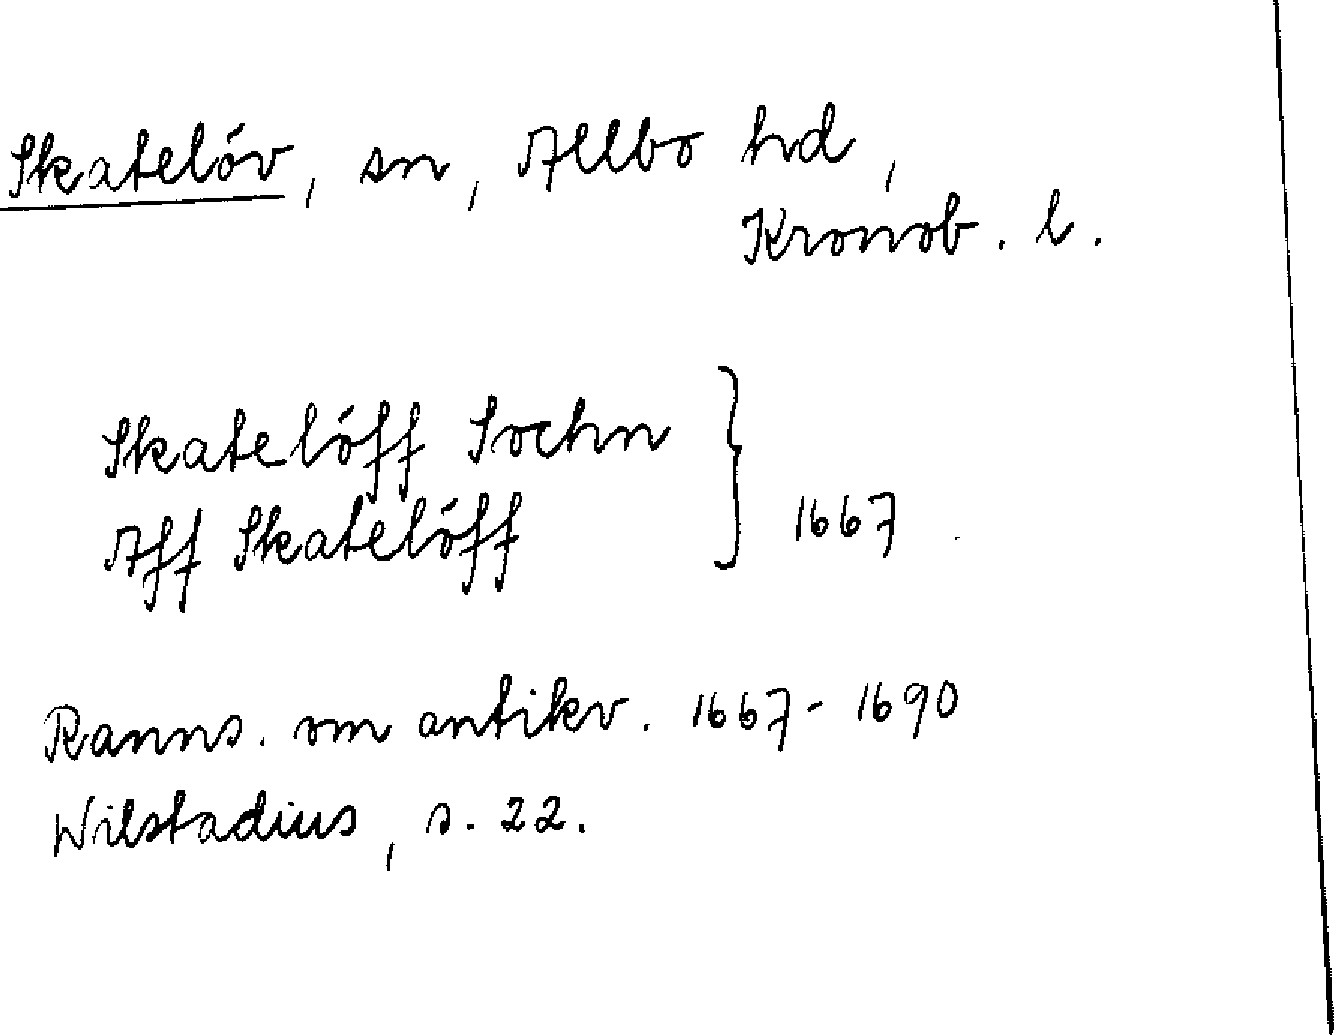 Skatelöv, sn, Allbo hd,
Kronob. l.
Skatelöff Sochn
Aff Skatelöff } 1667
Ranns. om antikv. 1667-1690
Wilstadius, s. 22.